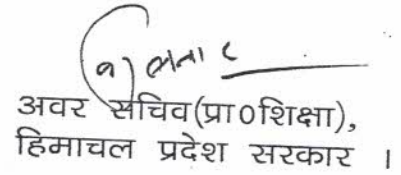 अवर सचिव(प्रा०शिक्षा),
हिमाचल प्रदेश सरकार ।